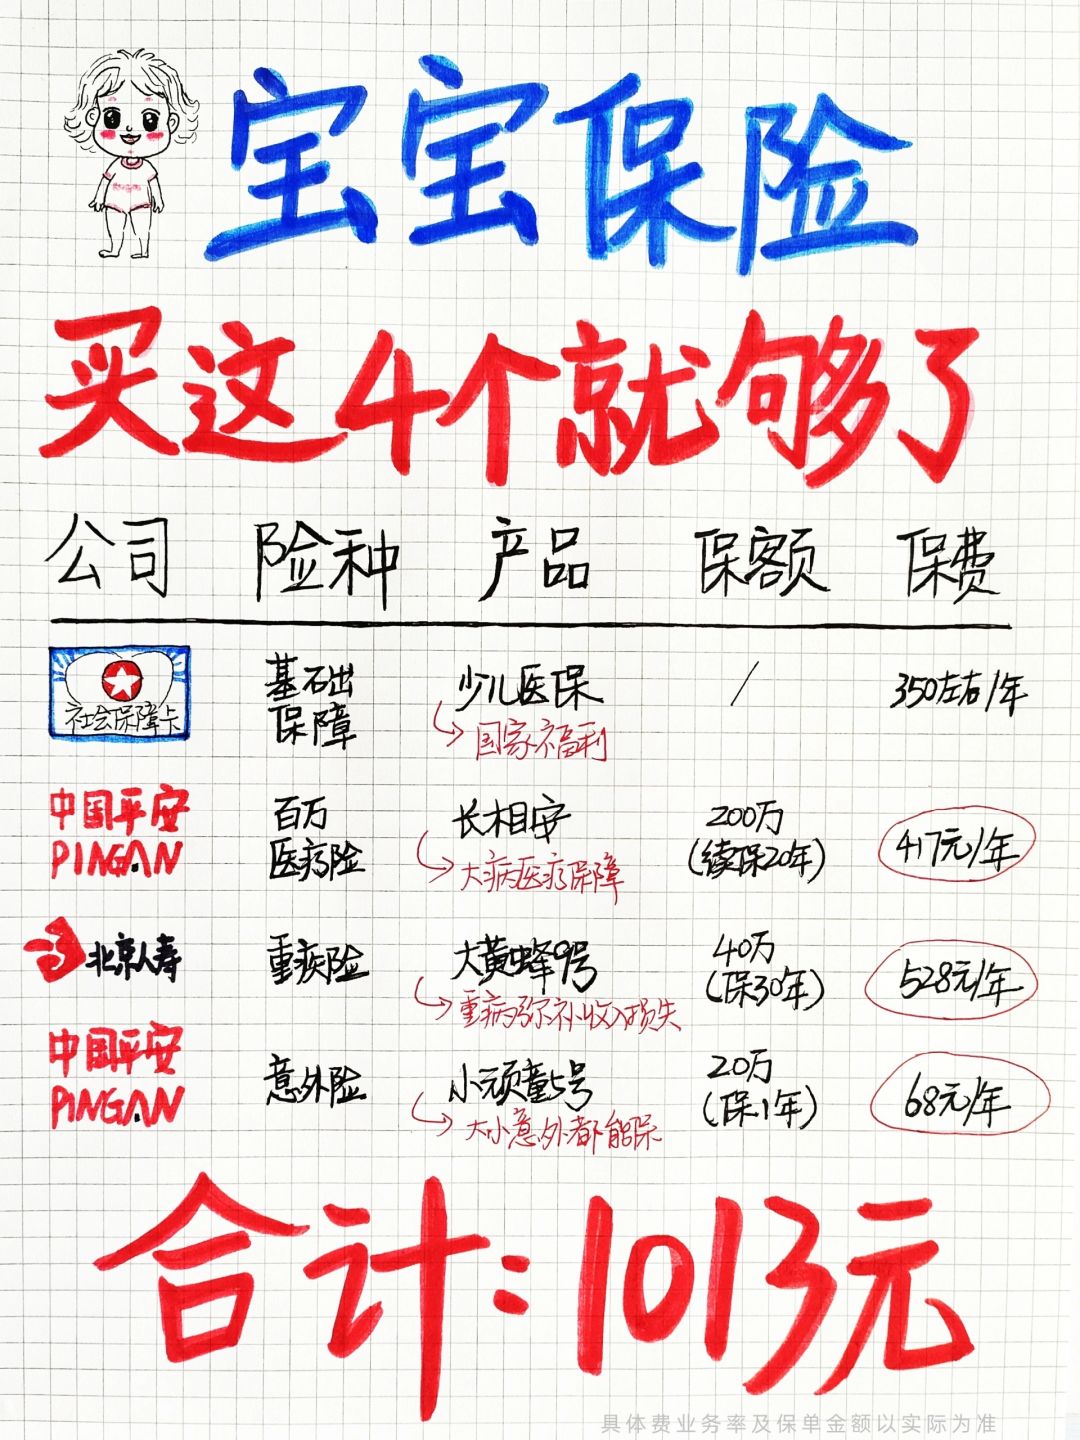 宝宝保险
买这4个就够了
公司 险种 产品 保额 保费
社会保障卡 基础保障 少儿医保 / 350左右/年
国家福利
中国平安 PINGAN 百万医疗险 长相安 200万(续保20年) 417元/年
大病医疗保障
北京人寿 重疾险 大黄蜂9号 40万(保30年) 528元/年
重病弥补收入损失
中国平安 PINGAN 意外险 小顽童5号 20万(保1年) 68元/年
大小意外都能保
合计:1013元
具体费业务率及保单金额以实际为准